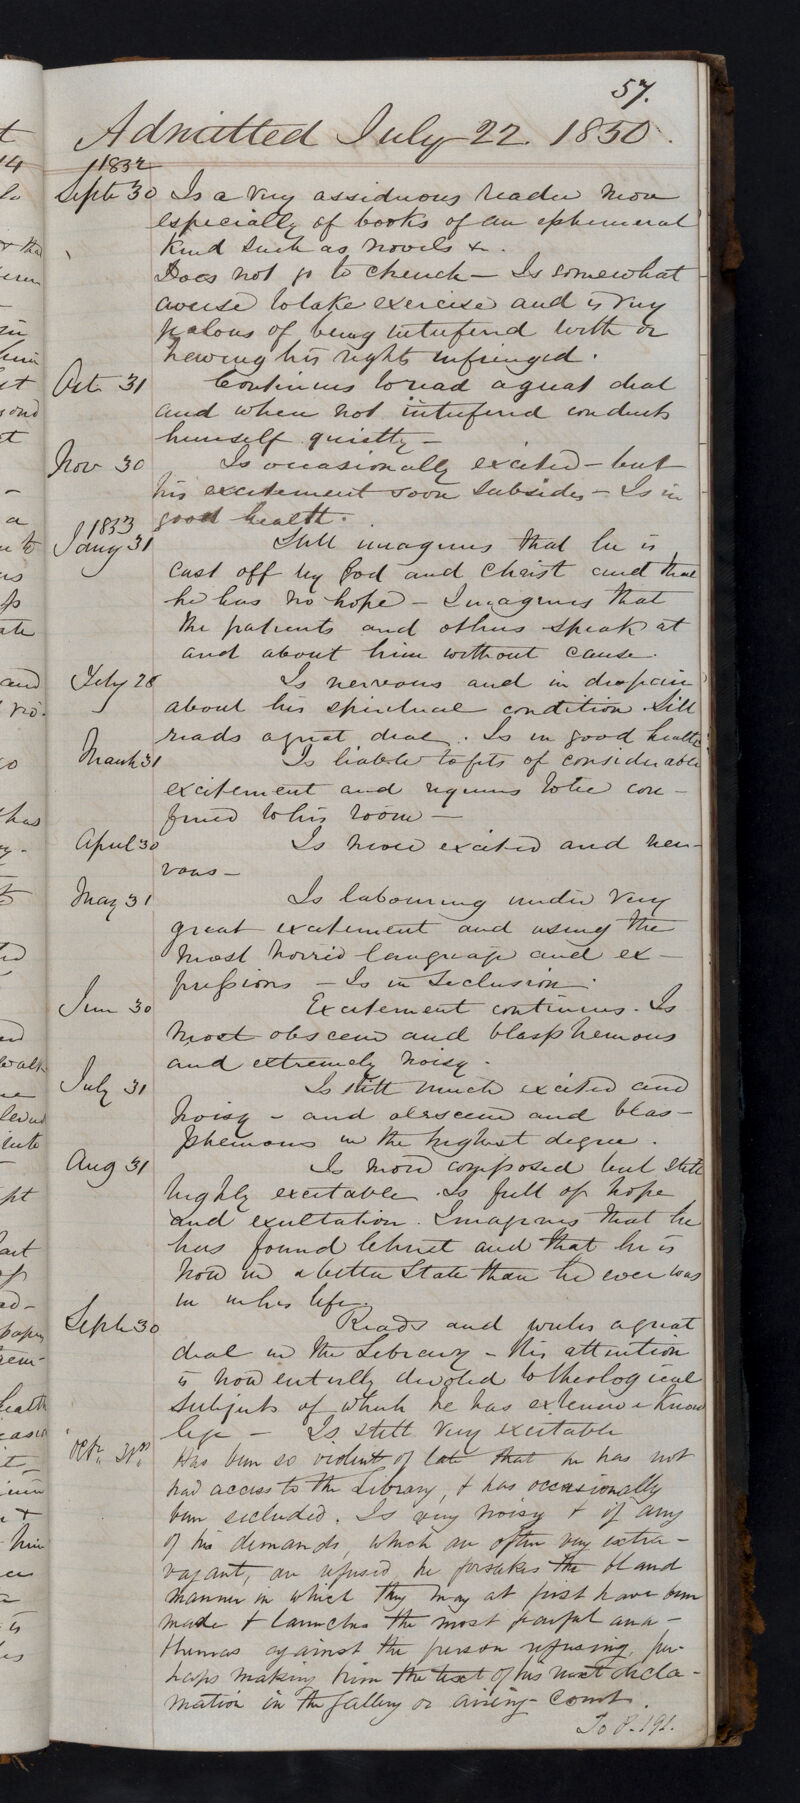 57.
Admitted July 22. 1850.
1852
Septr 30 Is a very assiduous reader more
especially of books of an ephemeral
kind such as novels &c.
Does not go to church — Is somewhat
averse to take exercise and is very
jealous of being interfered with or
having his rights infringed.
Oct 31 Continues to read a great deal
and when not interfered conducts
himself quietly —
Nov 30 Is occasionally excited — but
his excitement soon subsides — Is in
good health.
1853
Jany 31 Still imagines that he is
cast off by God and Christ and that
he has no hope — Imagines that
the patients and others speak at
and about him without cause.
Feby 28 Is nervous and in despair
about his spiritual condition. Still
reads a great deal. Is in good health
March 31 Is liable to fits of considerable
excitement and requires to be con-
fined to his room —
April 30 Is more excited and ner-
vous —
May 31 Is labouring under very
great excitement and using the
most horrid language and ex-
pressions — Is in Seclusion.
June 30 Excitement continues. Is
most obscene and blasphemous
and extremely noisy.
July 31 Is still much excited and
noisy — and obscene and blas-
phemous in the highest degree.
Aug 31 Is more composed but still
highly excitable. Is full of hope
and exultation. Imagines that he
has found Christ and that he is
now in a better State than he ever was
in in his life.
Septr 30 Reads and writes a great
deal in the Library — His attention
is now entirely devoted to theological
subjects of which he has extensive know
lege — Is still very excitable
Octr. 31st. Has been so violent of late that he has not
had access to the Library, & has occasionally
been secluded. Is very noisy & if any
of his demands, which are often very extra-
vagant, are refused, he forsakes the bland
manner in which they may at first have been
made & launches the most fearful ana-
themas against the person refusing, per-
haps making him the text of his next decla-
mation in the gallery or airing-court.
To P. 191.